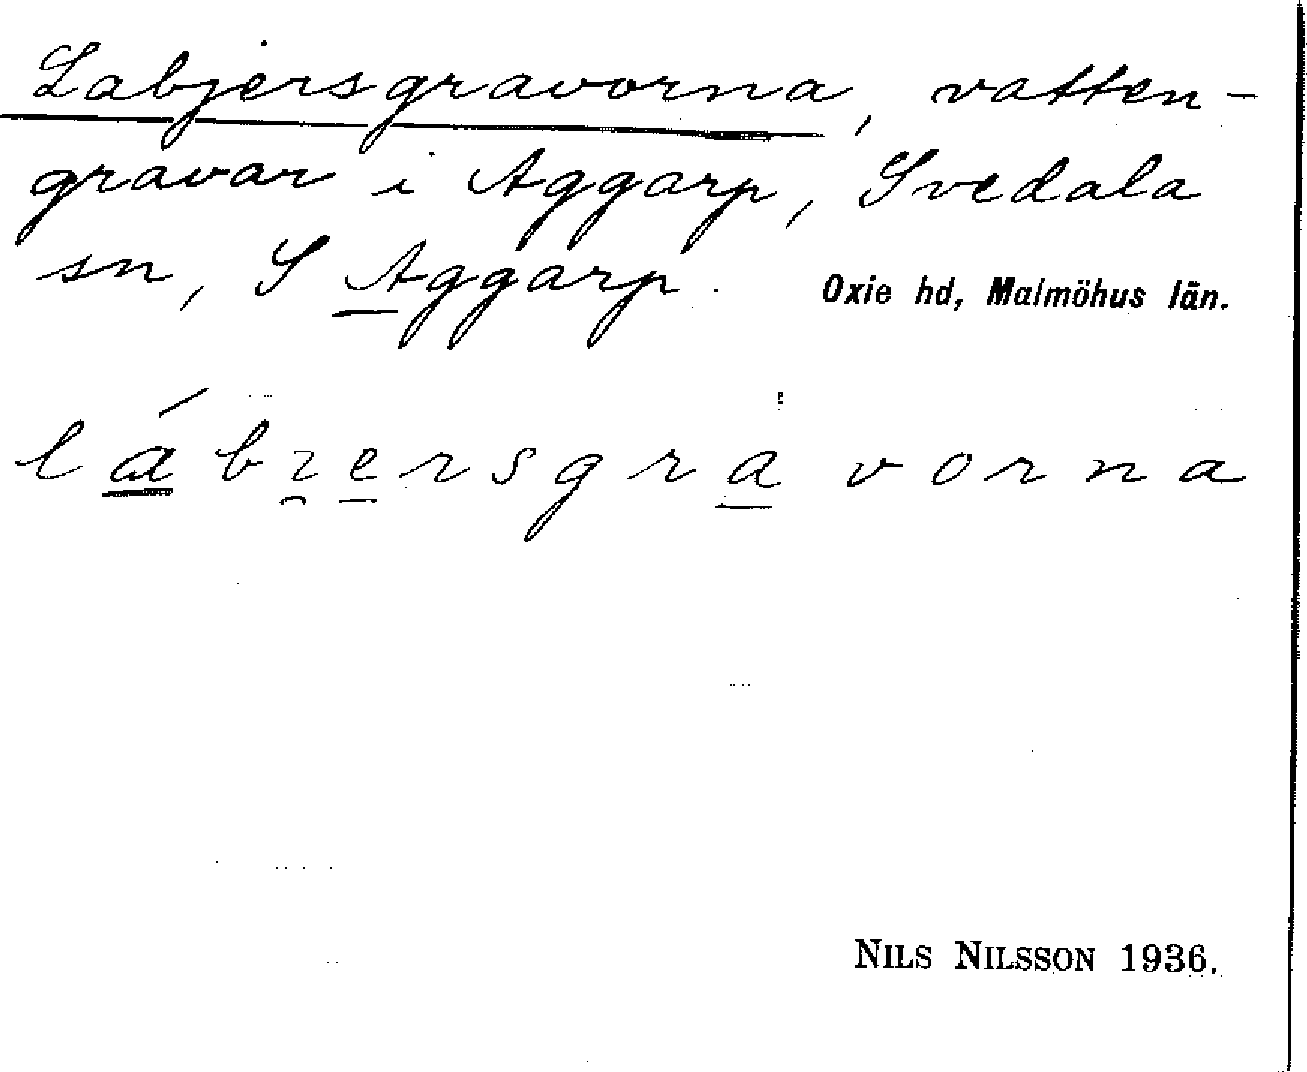 Labjersgravorna, vatten-
gravar i Aggarp, Svedala
sn, S Aggarp. Oxie hd, Malmöhus län.
lábi̯ersgravorna
NILS NILSSON 1936.